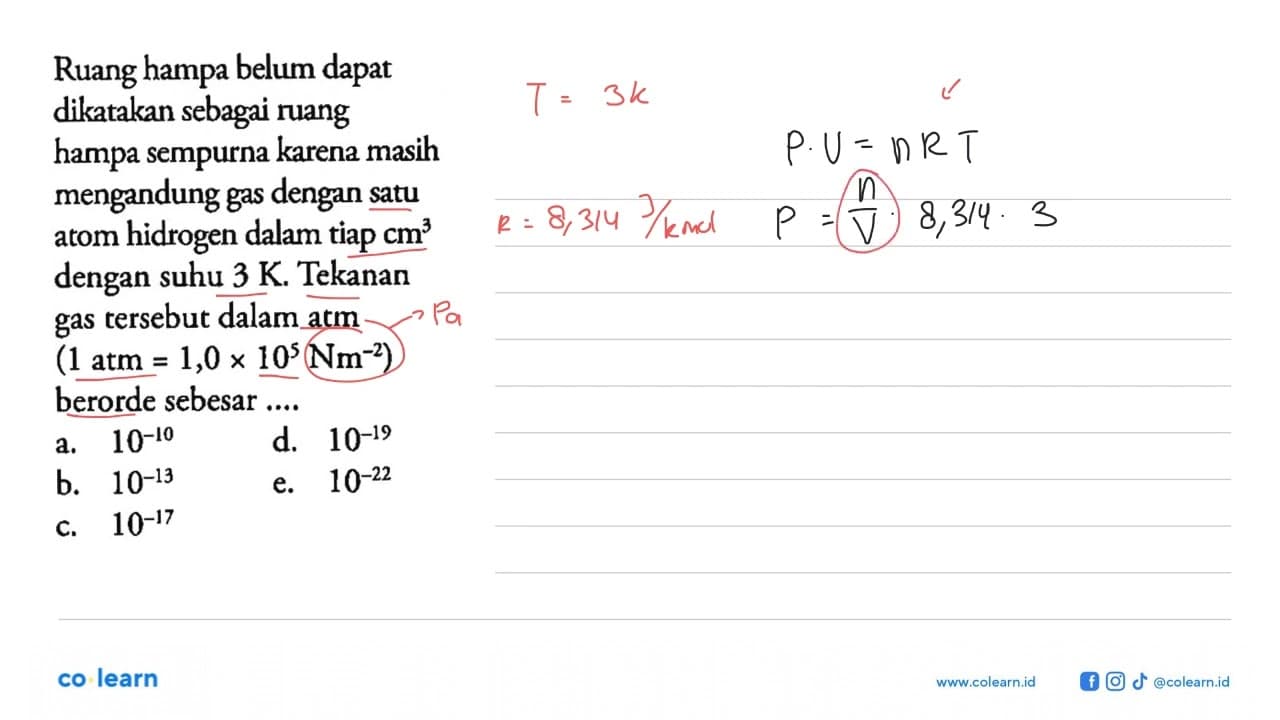 Ruang hampa belum dapat
dikatakan sebagai ruang
hampa sempurna karena masih
mengandung gas dengan satu
atom hidrogen dalam tiap cm³
dengan suhu 3 K. Tekanan
gas tersebut dalam atm
(1 atm = 1,0 × 10⁵ Nm⁻²)
berorde sebesar ....
a. 10⁻¹⁰ d. 10⁻¹⁹
b. 10⁻¹³ e. 10⁻²²
c. 10⁻¹⁷
Pa
T = 3k
R = 8,314 J/k mol
P. V = n R T
P = n/V . 8,314 . 3
co learn
www.colearn.id @colearn.id